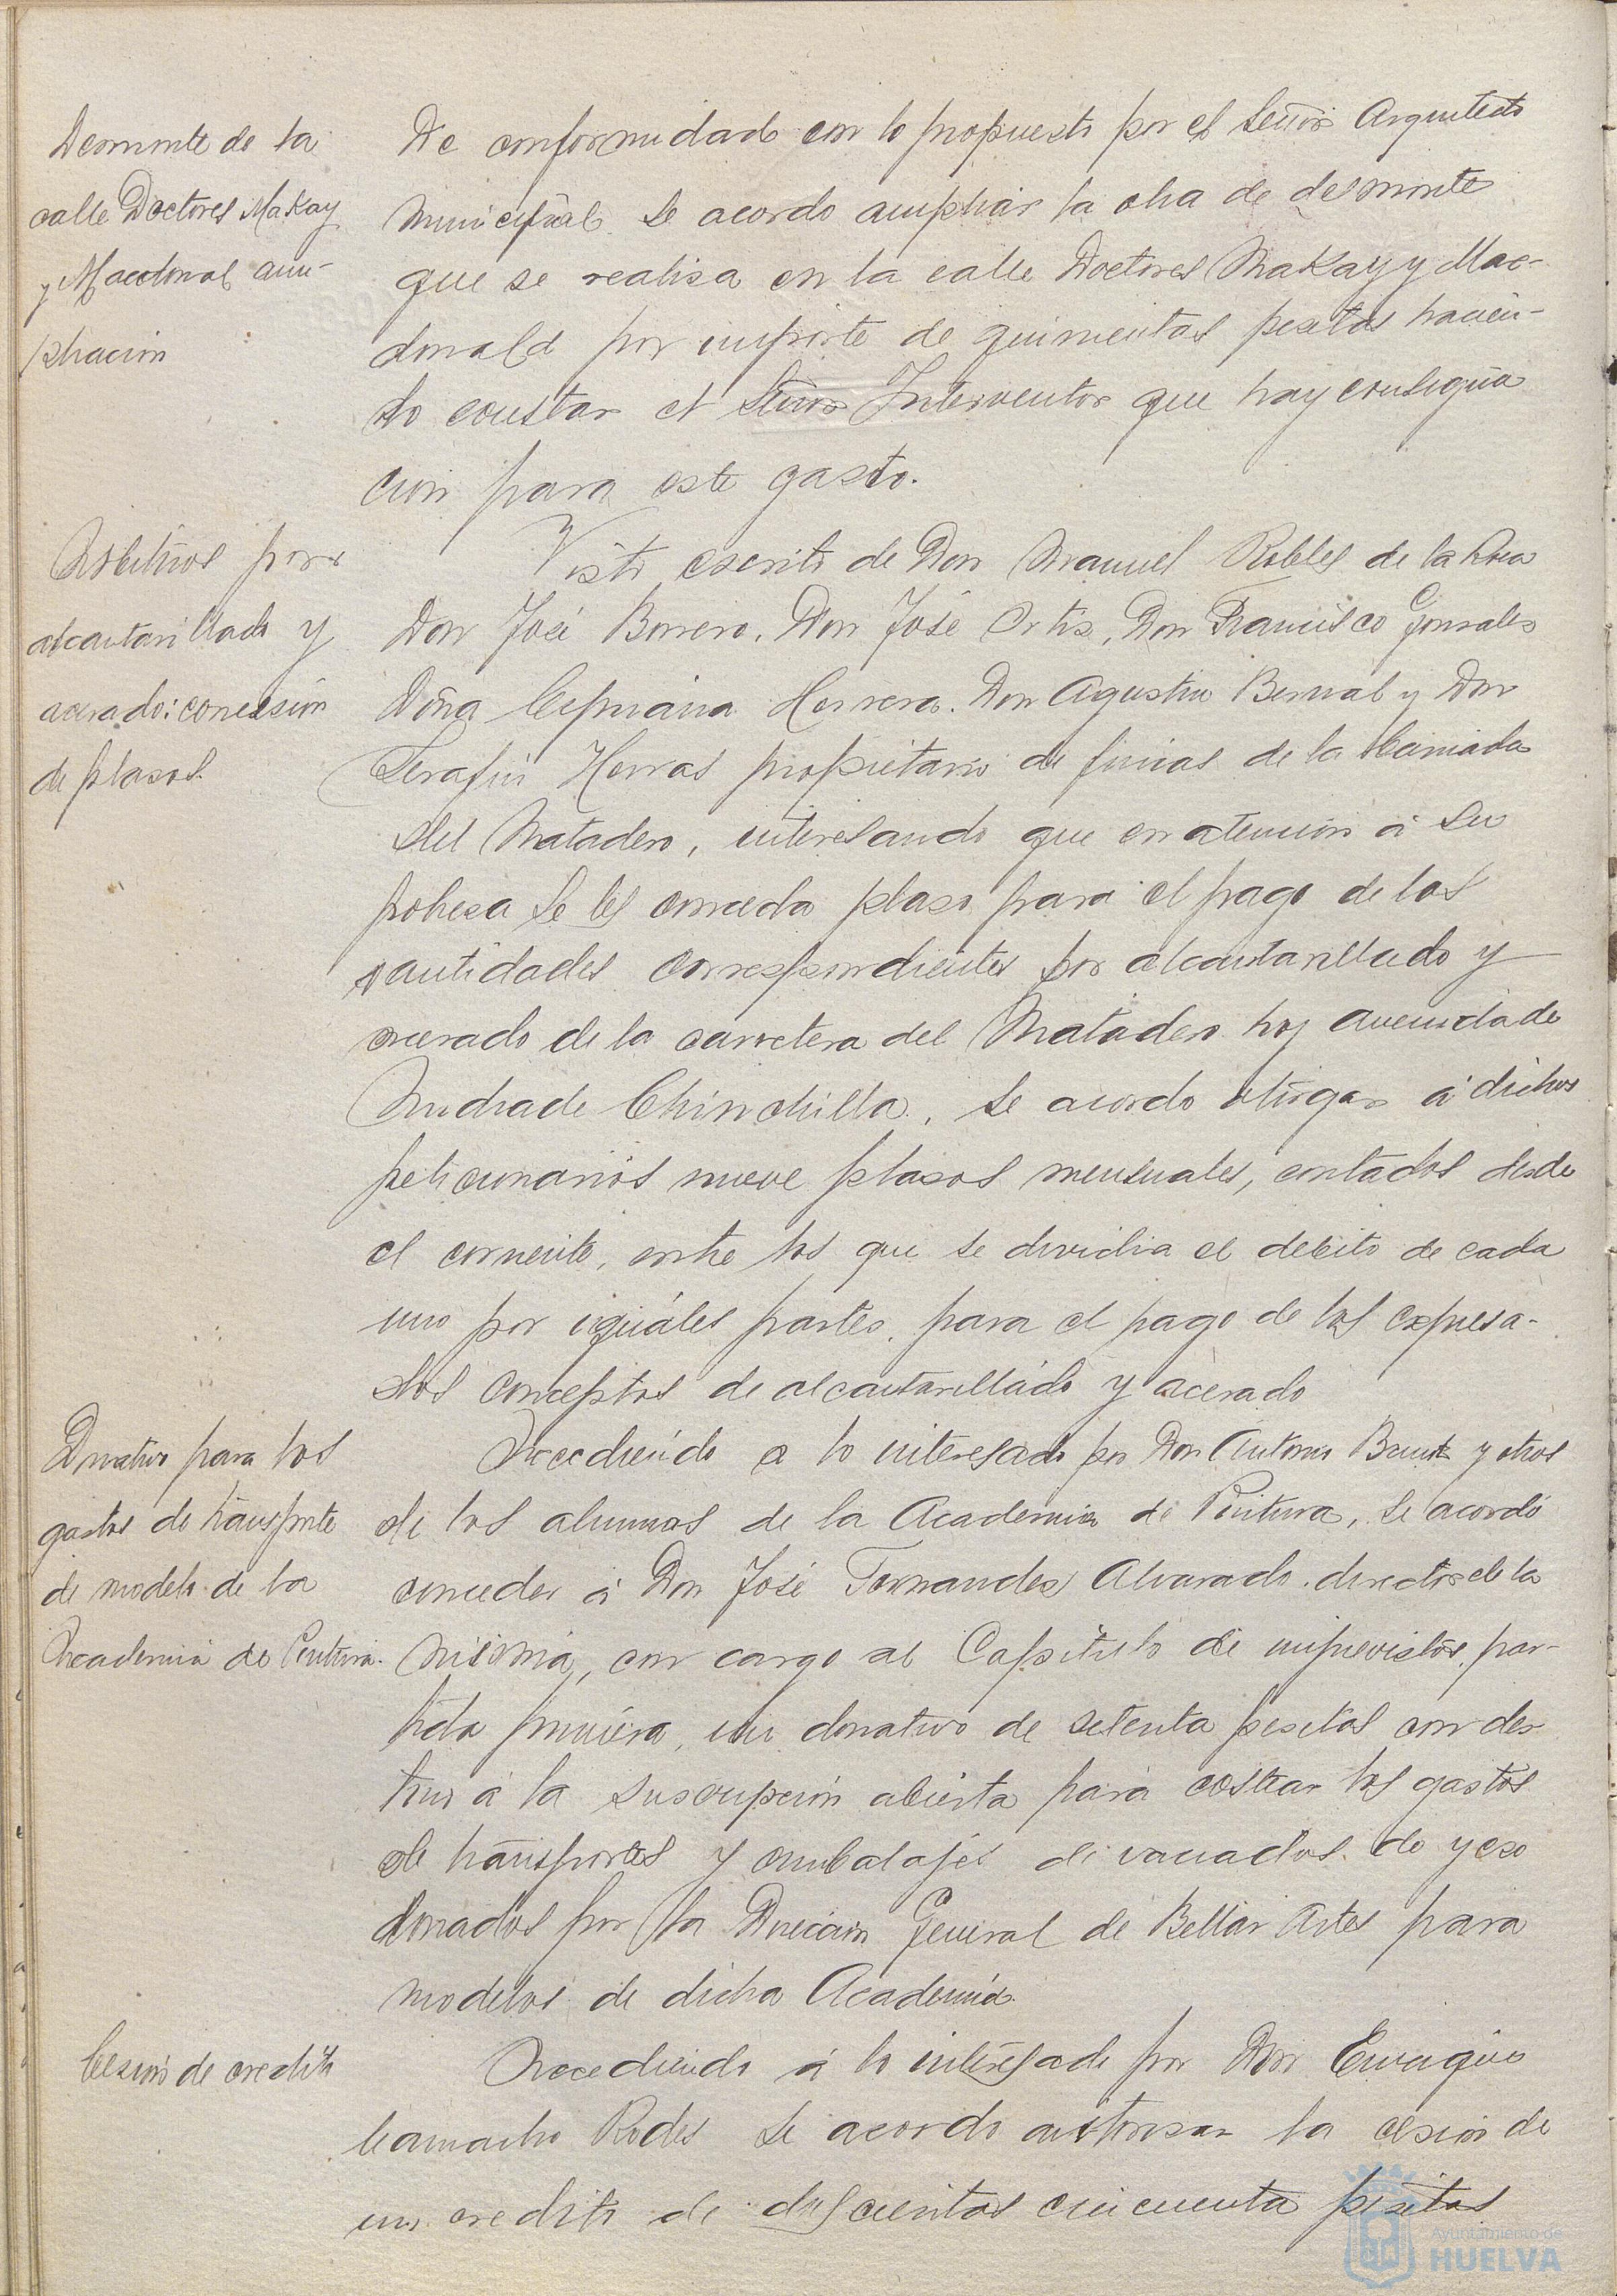 Desmonte de la
calle Doctores MaKay
y Macdonal am-
pliación
De conformidad con lo propuesto por el Señor Arquitecto
Municipal se acordo ampliar la obra de desmonte
que se realisa en la calle Doctores MaKay y Mac-
donald por importe de quinientas pesetas hacien-
do constar el Señor Interventor que hay consigna
cion para este gasto.
Arbitrios por
alcantarillado y
acerado: conexsión
de plasos.
Visto escrito de Don Manuel Robles de la Rosa
Don José Borrero, Don José Ortis, Don Francisco Gonsales
Doña Cipriana Herrera. Don Agustin Bernal y Don
Serafin Herras propietario de fincas de la barriada
del Matadero, interesando que en atencion á su
pobresa se les conceda plaso para el pago de las
cantidades correspondientes por alcantarillado y
acerado de la carretera del Matadero hoy avenida de
Andrade Chinchilla, se acordo otorgar á dichos
peticionarios nueve plasos mensuales, contados desde
el corriente, entre los que se dividira el debito de cada
uno por iguales partes, para el pago de los expresa-
dos conceptos de alcantarillado y acerado
Donativo para los
gastos de transporte
de modelo de la
Academia de Pintura.
Accediendo a lo interesado por Don Antonio Brunt y otros
de los alumnos de la Academia de Pintura, se acordó
conceder á Don José Fernandes Alvarado, director de la
misma, con cargo al Capitulo de imprevistos, par-
tida primera, un donativo de setenta pesetas con des-
tino á la suscripción abierta para costear los gastos
de transportes y embalajes de vaciados de yeso
donados por la Dirección General de Bellas Artes para
modelos de dicha Academia.
Cesion de credito
Accediendo á lo interesado por Don Enrique
Camacho Rodes se acordo autorisar la cesion de
un credito de doscientas cincuenta pesetas
Ayuntamiento de
HUELVA